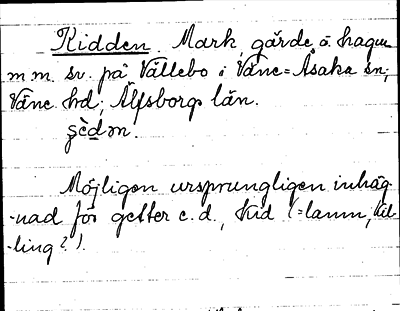 Kidden. Mark, gärde, ä. hagar
m m. sv. på Vällebo i Väne-Åsaka sn;
Väne hd; Älfsborgs län.
şèdәn.
Möjligen ursprungligen inhäg-
-nad för getter e. d., Kid (=lamm, kil-
-ling?).